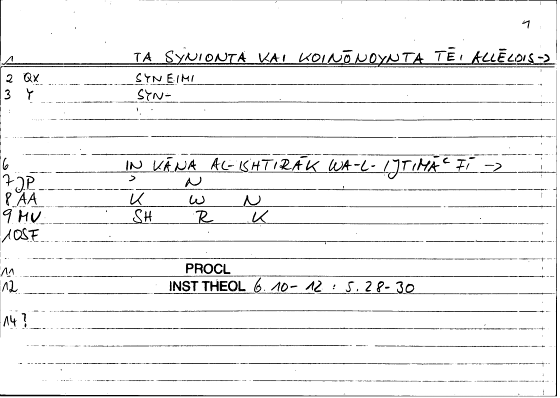 1
1 TA SYNIONTA KAI KOINŌNOYNTA TĒI ALLĒLOIS →
2 QX SYNEIMI
3 Y SYN-
6 IN KĀNA AL-ISHTIRĀK WA-L-IJTIMĀʿ FĪ →
7 JP ʾ N
8 AA K W N
9 MU SH R K
10 SF
11 PROCL
12 INST THEOL 6.10-12 : 5.28-30
14 ?